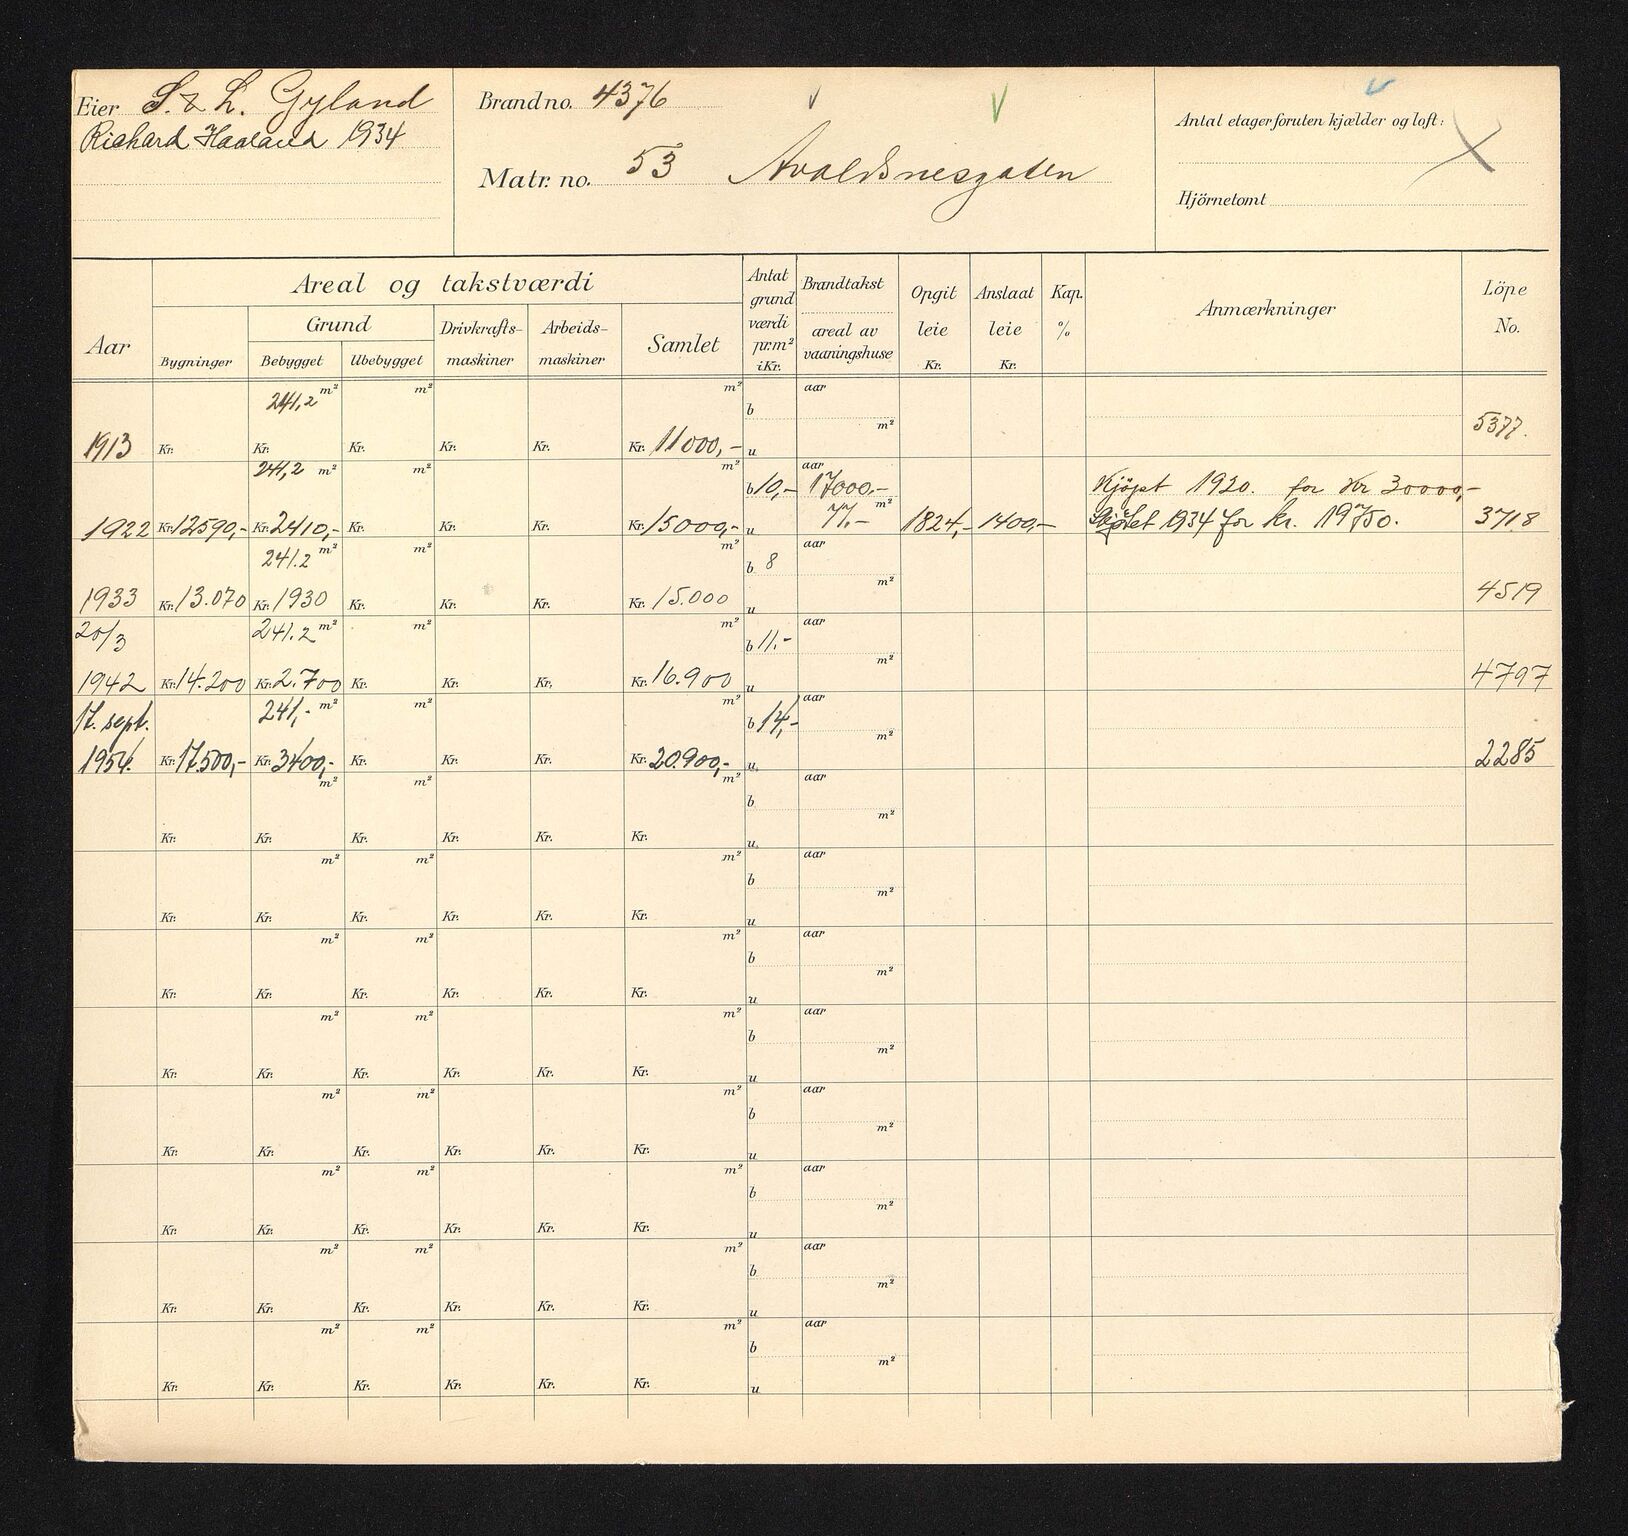 Eier S. & L. Gyland
Richard Haaland 1934
Brand no. 4376
Matr. no. 53 Avaldsnesgaten
Antal etager foruten kjælder og loft:
Hjörnetomt
Aar
Areal og takstværdi
Grund
Bygninger
Bebygget
Ubebygget
Drivkrafts-
maskiner
Arbeids-
maskiner
Samlet
Antat
grund
værdi
pr.m²
i Kr.
Brandtakst
areal av
vaaningshuse
Opgit
leie
Kr.
Anslaat
leie
Kr.
Kap.
%
Anmærkninger
Löpe
No.
241,2 m² m² m² b aar
m²
1913 Kr. Kr. Kr. Kr. Kr. Kr. 11000,- u 5377.
241,2 m² m² m² b 10,- aar 17000.- Kjöpt 1920. for Kr 30000,-
77,- m²
1922 Kr. 12590,- Kr. 2410,- Kr. Kr. Kr. Kr. 15000,- u 1824,- 1400,- 1934 for kr. 19750. 3718
241.2 m² m² m² b 8 aar
m²
1933 Kr. 13.070 Kr. 1930 Kr. Kr. Kr. Kr. 15.000 u 4519
20/3 241.2 m² m² m² b 11,- aar
m²
1942 Kr. 14.200 Kr. 2.700 Kr. Kr. Kr. Kr. 16.900 u 4797
17. sept. 241,- m² m² m² b 14,- aar
m²
1954. Kr. 17.500,- Kr. 3400,- Kr. Kr. Kr. Kr. 20.900,- u 2285
m² m² m² b aar
m²
Kr. Kr. Kr. Kr. Kr. Kr. u
m² m² m² b aar
m²
Kr. Kr. Kr. Kr. Kr. Kr. u
m² m² m² b aar
m²
Kr. Kr. Kr. Kr. Kr. Kr. u
m² m² m² b aar
m²
Kr. Kr. Kr. Kr. Kr. Kr. u
m² m² m² b aar
m²
Kr. Kr. Kr. Kr. Kr. Kr. u
m² m² m² b aar
m²
Kr. Kr. Kr. Kr. Kr. Kr. u
m² m² m² b aar
m²
Kr. Kr. Kr. Kr. Kr. Kr. u
m² m² m² b aar
m²
Kr. Kr. Kr. Kr. Kr. Kr. u